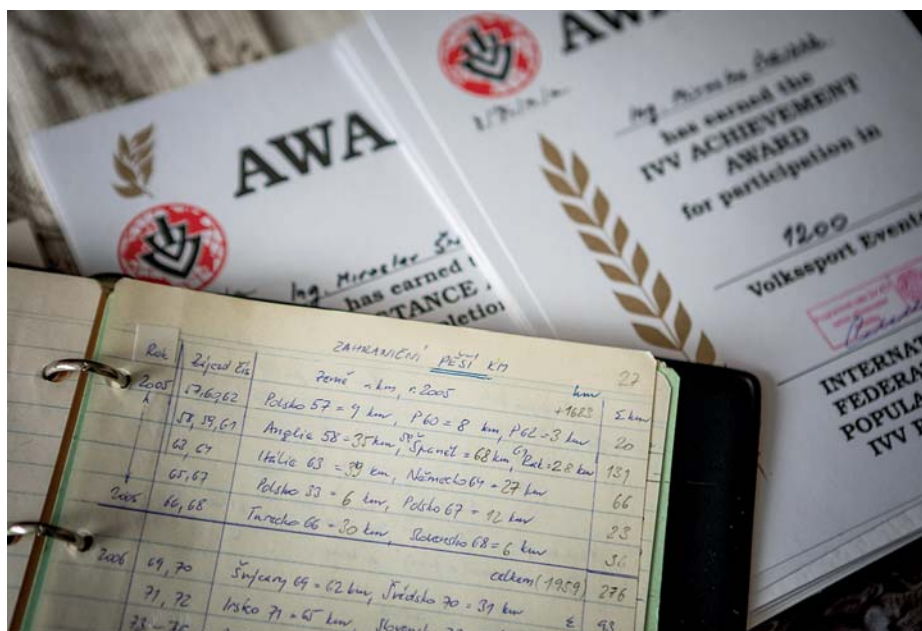 AWA
AWA
Ing. Miroslav
has earned the
IVV ACHIEVEMENT
AWARD
for participation in
1200
Volkssport Event
INTERNAT
FEDERAT
POPULA
IVV
Ing. Miroslav
has earned t
STANCE A
pletion
ZAHRANIČNÍ PĚŠÍ KM
27
Rok Zájezd čís země a km, r. 2005 km Σ km
+1683
2005 57,60,62 Polsko 57 = 9 km, P60 = 8 km, P62 = 3 km 20
58, 59, 61 Anglie 58 = 35 km, 59 Španěl = 68 km, 61 Rak = 28 km 131
63, 64 Itálie 63 = 39 km, Německo 64 = 27 km 66
65, 67 Polsko 33 = 6 km, Polsko 67 = 12 km 23
2005 66, 68 Turecko 66 = 30 km, Slovensko 68 = 6 km 36
celkem (1959) 276
2006 69, 70 Švýcary 69 = 62 km, Švédsko 70 = 31 km Σ 93
71, 72 Irsko 71 = 65 km, Slovensk